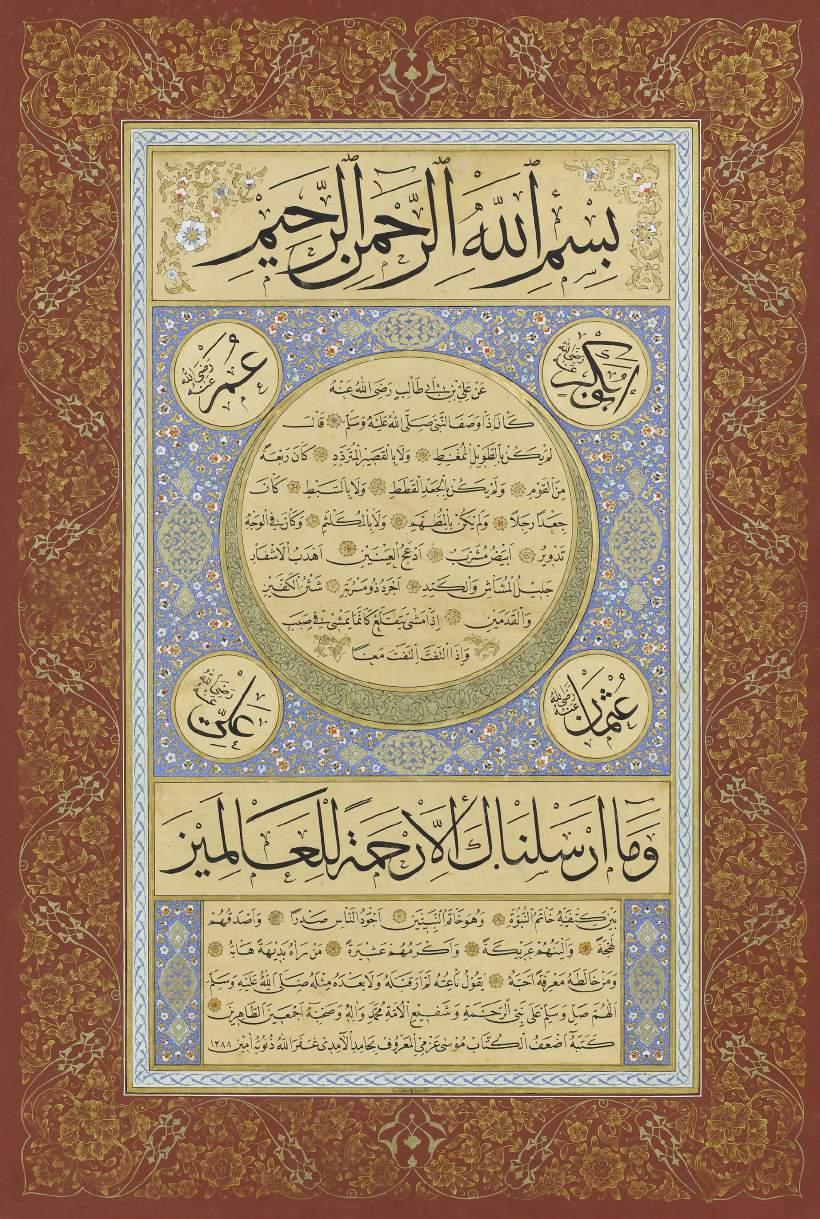 بِسْمِ اللَّهِ الرَّحْمَنِ الرَّحِيمِ
ابوبكر رَضِيَ اللهُ عَنْهُ
عُمَر رَضِيَ اللهُ عَنْهُ
عَنْ عَلِيِّ بْنِ اَبِي طَالِبٍ رَضِيَ اللهُ عَنْهُ
كَانَ اِذَا وَصَفَ النَّبِيَّ صَلَّى اللهُ عَلَيْهِ وَسَلَّمَ قَالَ
لَمْ يَكُنْ بِالطَّوِيلِ الْمُمَّغِطِ وَلَا بِالْقَصِيرِ الْمُتَرَدِّدِ كَانَ رَبْعَةً
مِنَ الْقَوْمِ وَلَمْ يَكُنْ بِالْجَعْدِ الْقَطَطِ وَلَا بِالسَّبْطِ كَانَ
جَعْدًا رَجِلًا وَلَمْ يَكُنْ بِالْمُطَهَّمِ وَلَا بِالْمُكَلْثَمِ وَكَانَ فِي الْوَجْهِ
تَدْوِيرٌ اَبْيَضُ مُشْرَبٌ اَدْعَجُ الْعَيْنَيْنِ اَهْدَبُ الْاَشْفَارِ
جَلِيلُ الْمُشَاشِ وَالْكَتَدِ اَجْرَدُ ذُو مَسْرُبَةٍ شَثْنُ الْكَفَّيْنِ
وَالْقَدَمَيْنِ اِذَا مَشَى يَتَقَلَّعُ كَاَنَّمَا يَمْشِي فِي صَبَبٍ
وَاِذَا الْتَفَتَ اِلْتَفَتَ مَعًا
عُثْمَان رَضِيَ اللهُ عَنْهُ
عَلِيّ رَضِيَ اللهُ عَنْهُ
وَمَا اَرْسَلْنَاكَ اِلَّا رَحْمَةً لِلْعَالَمِينَ
بَيْنَ كَتِفَيْهِ خَاتَمُ النُّبُوَّةِ وَهُوَ خَاتَمُ النَّبِيِّينَ اَجْوَدُ النَّاسِ صَدْرًا وَاَصْدَقُهُمْ
لَهْجَةً وَاَلْيَنُهُمْ عَرِيكَةً وَاَكْرَمُهُمْ عَشِيرَةً مَنْ رَآهُ بَدِيهَةً هَابَهُ
وَمَنْ خَالَطَهُ مَعْرِفَةً اَحَبَّهُ يَقُولُ نَاعِتُهُ لَمْ اَرَ قَبْلَهُ وَلَا بَعْدَهُ مِثْلَهُ صَلَّى اللهُ عَلَيْهِ وَسَلَّمَ
اَللّٰهُمَّ صَلِّ وَسَلِّمْ عَلَى نَبِيِّ الرَّحْمَةِ وَشَفِيعِ الْاُمَّةِ مُحَمَّدٍ وَآلِهِ وَصَحْبِهِ اَجْمَعِينَ الطَّاهِرِينَ
كَتَبَهُ اَضْعَفُ الْكُتَّابِ مُوسَى عَزْمِي الْمَعْرُوفُ بِحَامِدِ الْآمِدِي غَفَرَ اللهُ ذُنُوبَهُ آمِين ١٣٨٨